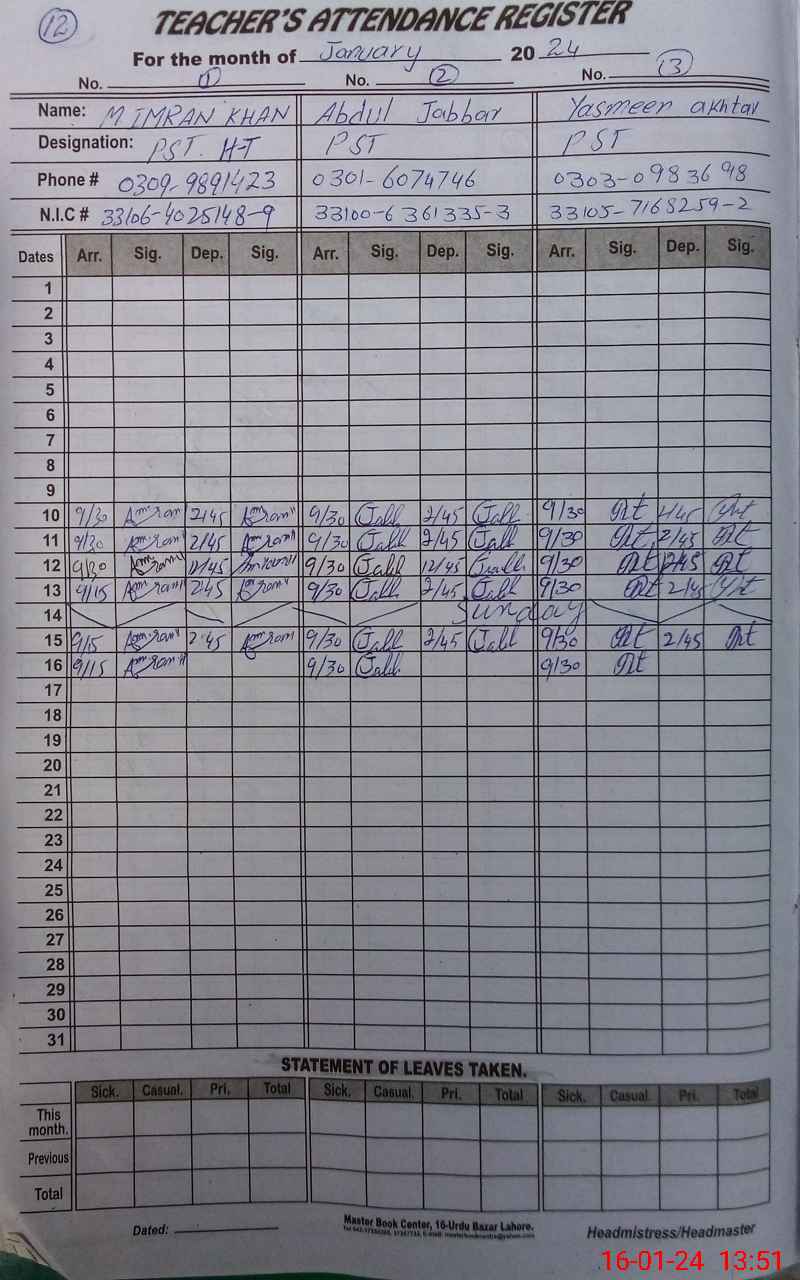 12
TEACHER'S ATTENDANCE REGISTER
For the month of January 2024
No. 1 No. 2 No. 3
Name: M IMRAN KHAN Abdul Jabbar Yasmeen akhtar
Designation: PST. H-T PST PST
Phone # 0309-9891423 0301-6074746 0303-0983698
N.I.C # 33106-4025148-9 33100-6361335-3 33105-7168259-2
Dates Arr. Sig. Dep. Sig. Arr. Sig. Dep. Sig. Arr. Sig. Dep. Sig.
1
2
3
4
5
6
7
8
9
10 9/30 2/45 9/30 Jabb 2/45 Jabb 9/30 2/45
11 9/30 2/45 9/30 Jabb 2/45 Jabb 9/30 2/45
12 9/30 12/45 9/30 Jabb 12/45 Jabb 9/30
13 9/15 2:45 9/30 Jabb 2/45 Jabb 9/30 2/45
14 Sunday
15 9/15 2:45 9/30 Jabb 2/45 Jabb 9/30 2/45
16 9/15 9/30 Jabb 9/30
17
18
19
20
21
22
23
24
25
26
27
28
29
30
31
STATEMENT OF LEAVES TAKEN.
Sick. Casual. Pri. Total Sick. Casual. Pri. Total Sick. Casual. Pri. Total
This
month.
Previous
Total
Dated:
Master Book Center, 16-Urdu Bazar Lahore.
Headmistress/Headmaster
16-01-24 13:51